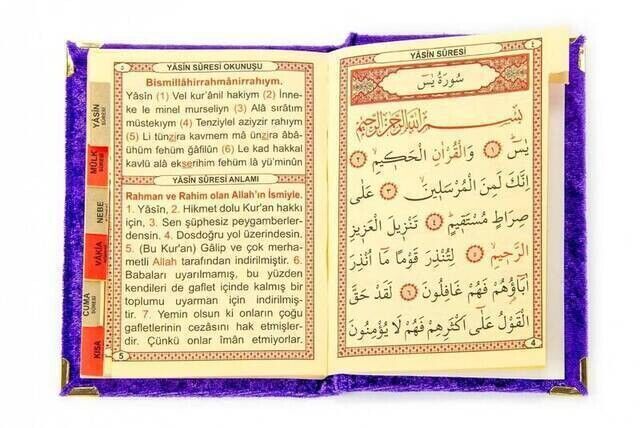 ٥
YÂSİN SÛRESİ OKUNUŞU
Bismillâhirrahmânirrahıym.
Yâsîn (1) Vel kur'ânil hakiym (2) İnne-
ke le minel murseliyn (3) Alâ sırâtım
müstekıym (4) Tenziylel aziyzir rahıym
(5) Li tünzira kavmem mâ ünzira âbâ-
ühüm fehüm gâfilûn (6) Le kad hakkal
kavlü alâ ekserihim fehüm lâ yü'minûn
YÂSİN SÛRESİ ANLAMI
Rahman ve Rahim olan Allah'ın İsmiyle.
1. Yâsîn, 2. Hikmet dolu Kur'an hakkı
için, 3. Sen şüphesiz peygamberler-
densin. 4. Dosdoğru yol üzerindesin.
5. (Bu Kur'an) Gâlip ve çok merha-
metli Allah tarafından indirilmiştir. 6.
Babaları uyarılmamış, bu yüzden
kendileri de gaflet içinde kalmış bir
toplumu uyarman için indirilmiş-
tir. 7. Yemin olsun ki onların çoğu
gafletlerinin cezasını hak etmişler-
dir. Çünkü onlar îmân etmiyorlar.
5
YÂSİN SÛRESİ
MÜLK SÛRESİ
NEBE
VÂKIA
CUMA SÛRESİ
KISA
YÂSİN SÛRESİ
٤
سُورَةُ يٰسٓ
بِسْمِ اللّٰهِ الرَّحْمٰنِ الرَّحِيمِ
يٰسٓ ﴿١﴾ وَالْقُرْاٰنِ الْحَكِيمِ ﴿٢﴾
اِنَّكَ لَمِنَ الْمُرْسَلِينَ ﴿٣﴾ عَلٰى
صِرَاطٍ مُسْتَقِيمٍ ﴿٤﴾ تَنْزِيلَ الْعَزِيزِ
الرَّحِيمِ ﴿٥﴾ لِتُنْذِرَ قَوْمًا مَٓا اُنْذِرَ
اٰبَٓاؤُهُمْ فَهُمْ غَافِلُونَ ﴿٦﴾ لَقَدْ حَقَّ
الْقَوْلُ عَلٰٓى اَكْثَرِهِمْ فَهُمْ لَا يُؤْمِنُونَ
4